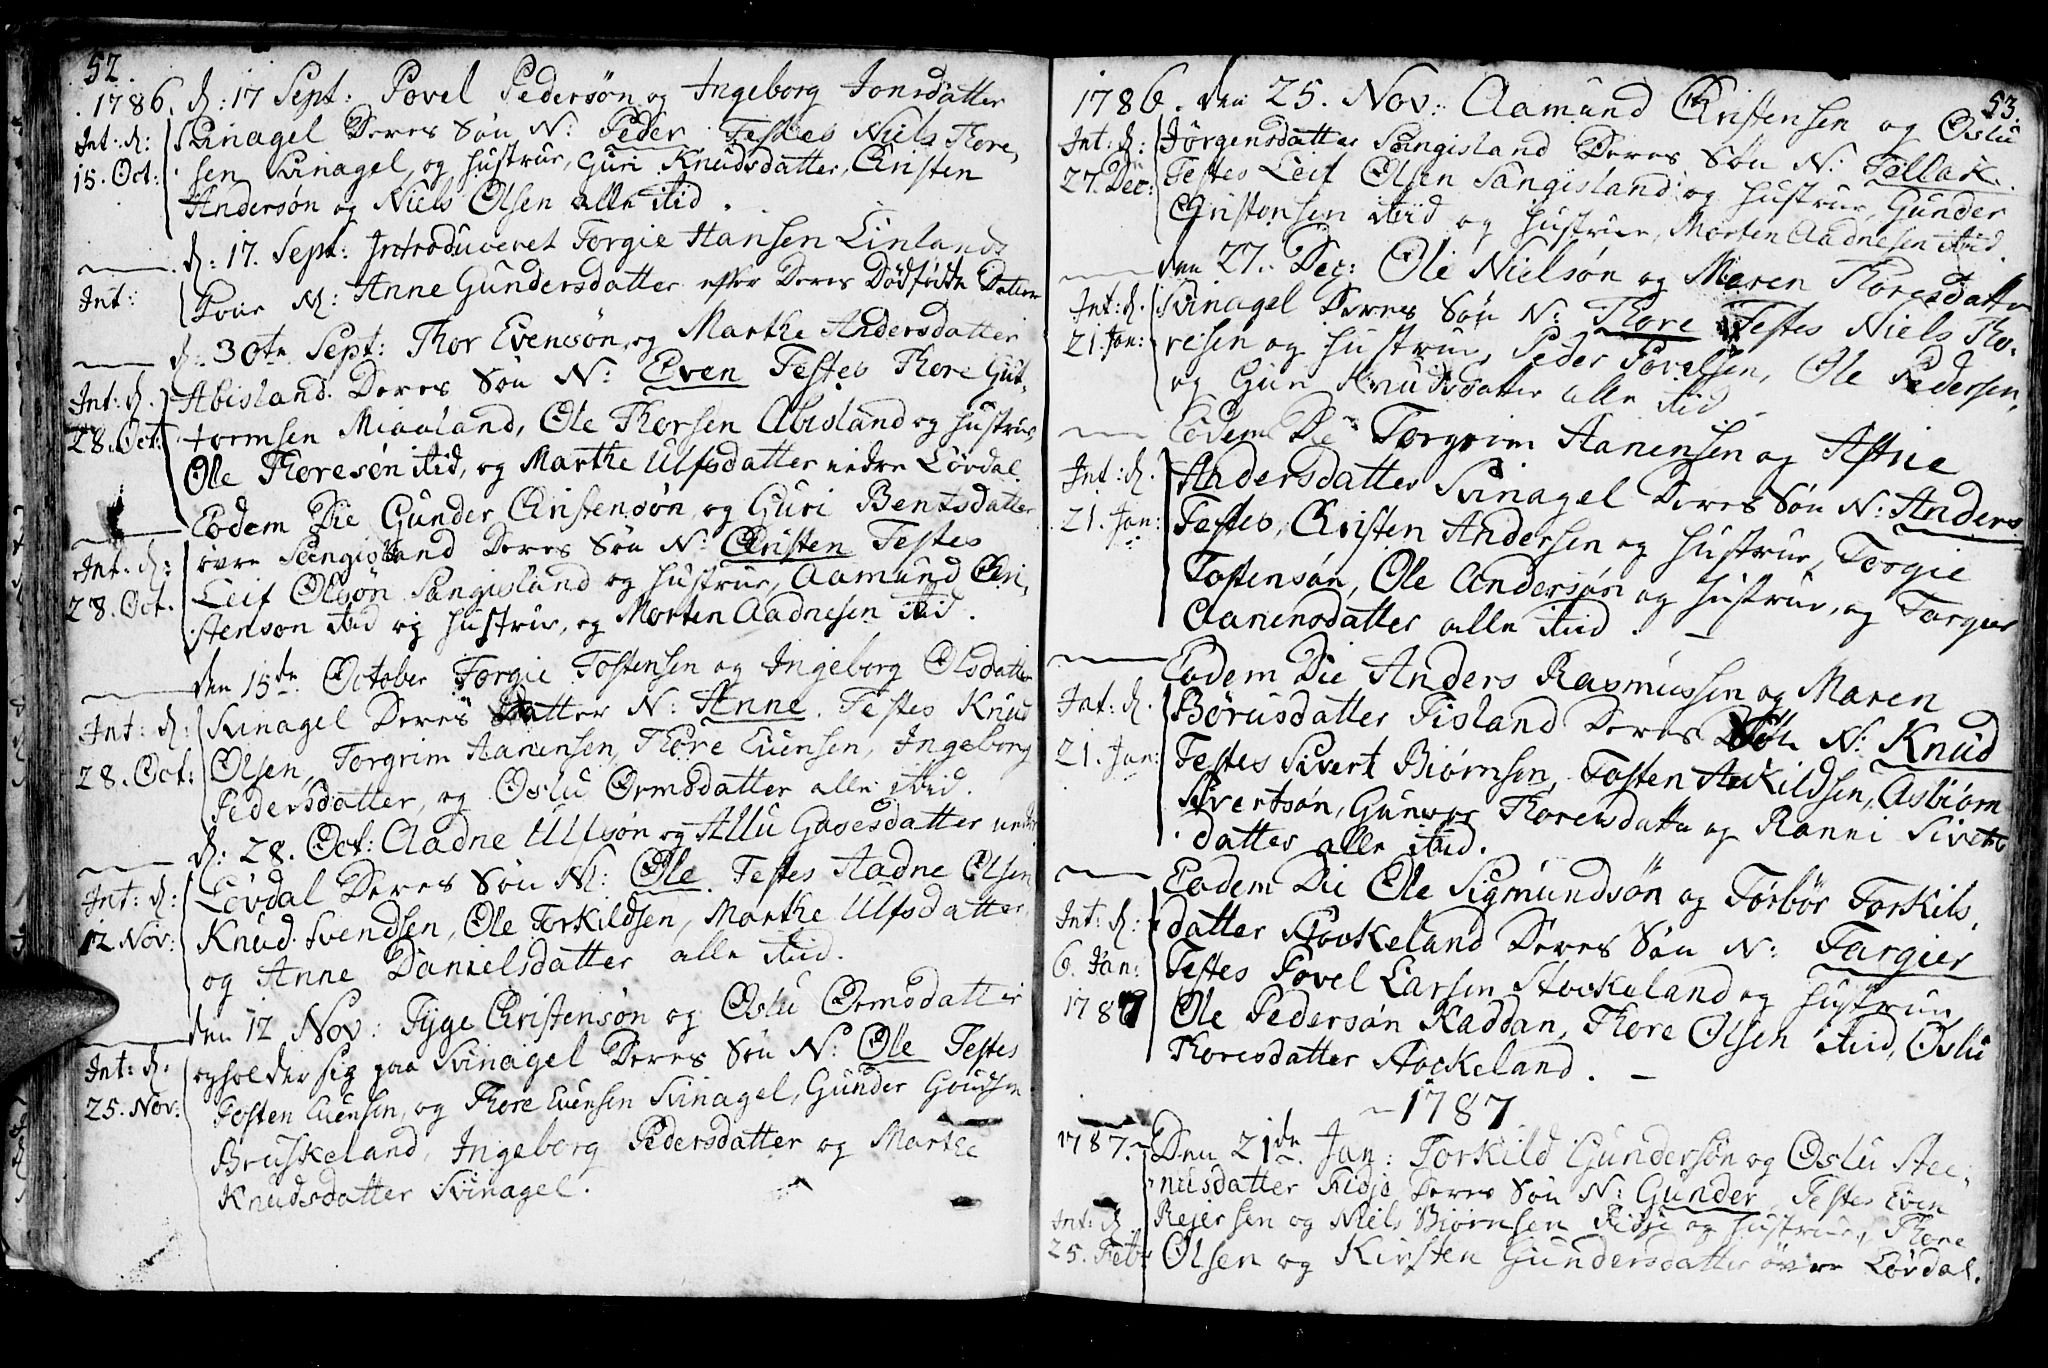 52.
1786. d: 17 Sept: Povel Pedersøn og Ingeborg Jonsdatter
Int: d: Svinagel Deres Søn N: Peder. Testes Niels Thore-
15. Oct: sen Svinagel, og Hustrue, Guri Knudsdatter, Christen
Andersøn og Niels Olsen alle ibid.
d: 17. Sept: Introduceret Torgie Hansen Linlands
Int: Kone N: Anne Gundersdatter efter Deres Dødfødte Datter
d: 30te Sept: Thor Evensøn, og Marthe Andersdatter
Int: d. Abisland. Deres Søn N: Even Testes Thore Gut-
28. Oct: tormsen Miaaland, Ole Thorsen Abisland og Hustrue
Ole Thoresøn ibid, og Marthe Ulfsdatter nedre Løvdal.
Eodem Die Gunder Christensøn, og Guri Bentsdatter
Int: d: øvre Sangisland Deres Søn N: Christen Testes
28. Oct. Leif Olsøn Sangisland og Hustrue, Aamund Chri-
stensøn ibid og Hustrue, og Morten Aadnesen ibid.
den 15de October Torgie Tostensen og Ingeborg Olsdatter
Int: d: Svinagel Deres Datter N: Anne. Testes Knud
28. Oct: Olsen, Torgrim Aanensen, Thore Evensen, Ingeborg
Pedersdatter, og Oslu Ormsdatter alle ibid.
d: 28. Oct: Aadne Ulfsøn og Allu Gavesdatter nedre
Int: d: Løvdal Deres Søn N: Ole. Testes Aadne Olsen
12 Nov: Knud Svendsen, Ole Torkildsen, Marthe Ulfsdatter,
og Anne Danielsdatter alle ibid.
den 12 Nov: Tyge Christensøn og Oslu Ormsdatter
Int: d. opholder sig paa Svinagel Deres Søn N: Ole Testes
25. Nov: Tosten Evensen, og Thore Evensen Svinagel, Gunder
Bruskeland, Ingeborg Pedersdatter og Marthe
Knudsdatter Svinagel.
53.
1786. den 25. Nov: Aamund Christensen og Oslu
Int: d: Jørgensdatter Sangisland Deres Søn N: Tellak.
27. Dec: Testes Leif Olsen Sangisland og Hustrue, Gunder
Christensen ibid og Hustrue, Morten Aadnesen ibid.
den 27. Dec: Ole Nielsøn og Maren Thoresdatter
Int: d. Svinagel Deres Søn N: Thore Testes Niels Tho-
21. Jan: resen og Hustrue, Peder Povelsen, Ole Pedersen,
og Guri Knudsdatter alle ibid
Eodem Die Torgrim Aanensen og Astrie
Int: d. Andersdatter Svinagel Deres Søn N: Anders
21. Jan: Testes, Christen Andersen og Hustrue, Torgie
Tostensøn, Ole Andersøn og Hustrue, og Targier
Aanensdatter alle ibid.
Eodem Die Anders Rasmussen og Maren
Int: d. Børusdatter Fisland Deres Søn N: Knud
21. Jan: Testes Sivert Biørnsen, Tosten Askildsen, Asbiørn
Sivertsøn, Gunvor Thoresdatter og Ranni Siverts
datter alle ibid.
Eodem Die Ole Sigmundsøn og Torbør Torkils-
Int: d: datter Stockeland Deres Søn N: Targier
6. Jan: Testes Povel Larsen Stockeland og Hustrue,
1787 Ole Pedersøn Kaddan, Thore Olsen ibid, Oslu
Thoresdatter Stockeland.
1787
1787. Den 21de Jan: Torkild Gundersøn og Oslu Stee-
nusdatter Risje Deres Søn N: Gunder Testes Even
Int: d. Rejersen og Niels Biørnsen Risje og Hustrue, Thore
25. Febr Olsen og Kirsten Gundersdatter øvre Løvdal.